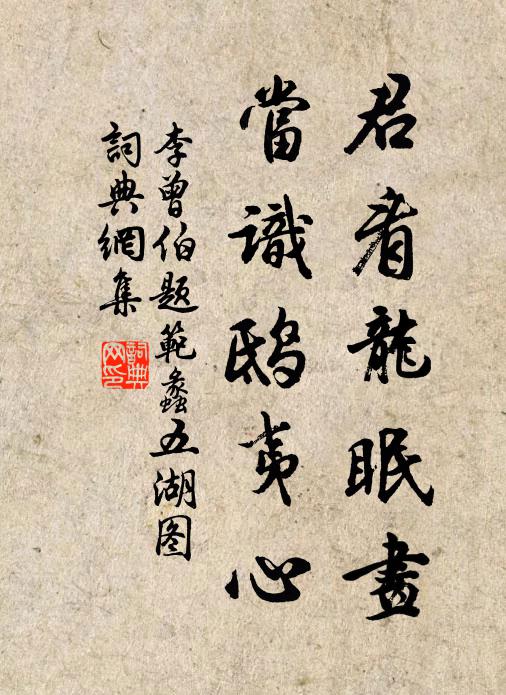 君看龍眠畫
當識鴟夷心
李曾伯題範蠡五湖图
詞典網集
詞典网印